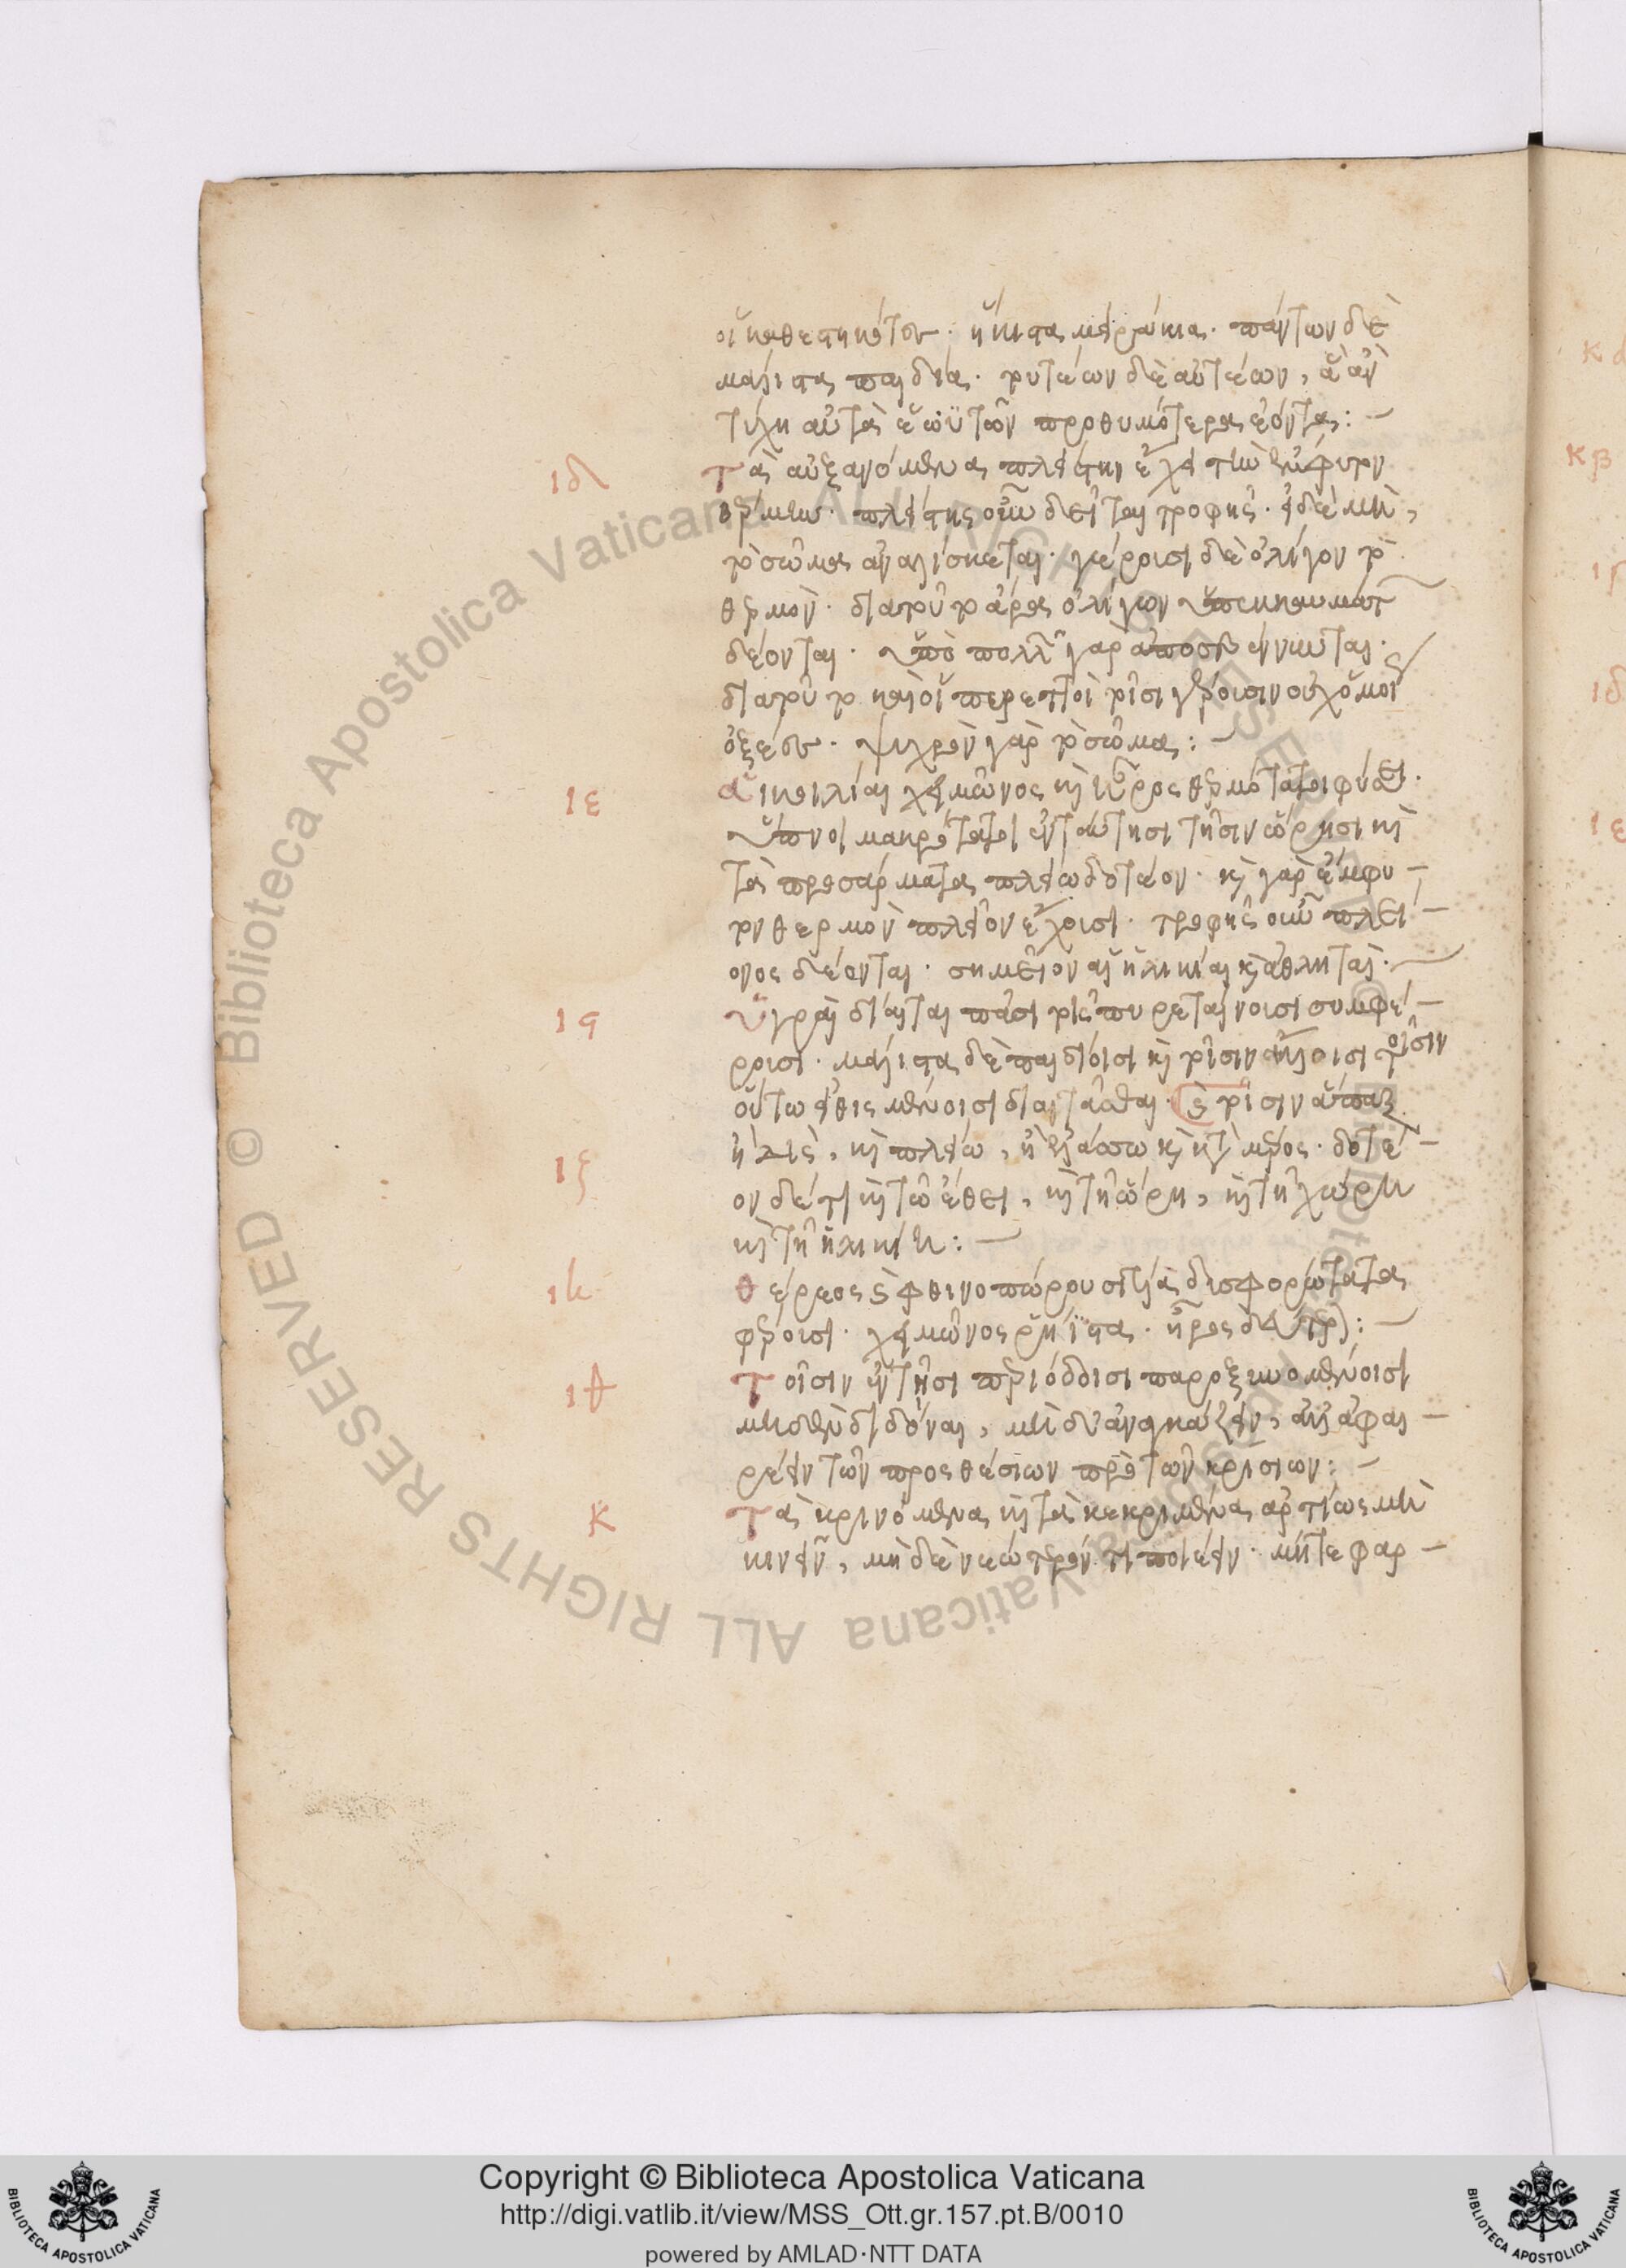 οἱ καθεστηκότες· ἥκιστα μειράκια· πάντων δὲ
μάλιστα παιδία· τουτέων δὲ αὐτέων, ἃ ἂν
τύχῃ αὐτὰ ἑωϋτῶν προθυμότερα ἐόντα:-
ιδ τὰ αὐξανόμενα πλεῖστον ἔχει τὸ ἔμφυτον
θερμὸν· πλείστης οὖν δεῖται τροφῆς· εἰ δὲ μὴ,
τὸ σῶμα ἀναλίσκεται· γέρουσι δὲ ὀλίγον τὸ
θερμὸν· διατοῦτο ἄρα ὀλίγων ὑπεκκαυμάτων
δέονται· ὑπὸ πολλῶν γὰρ ἀποσβέννυται·
διατοῦτο καὶ οἱ πυρετοὶ τοῖσι γέρουσιν οὐχ ὅμοιως
ὀξέες· ψυχρὸν γὰρ τὸ σῶμα:-
ιε αἱ κοιλίαι χειμῶνος καὶ ἦρος θερμόταται φύσει·
ὕπνοι μακρότατοι ἐν ταύτησι τῆσιν ὥρησι καὶ
τὰ προσάρματα πλείω δοτέον· καὶ γὰρ ἔμφυ-
τον θερμὸν πλεῖον ἔχουσι· τροφῆς οὖν πλεί-
ονος δέονται· σημεῖον αἱ ἡλικίαι καὶ ἀθληταί·
ις ὑγραὶ δίαιται πᾶσι τοῖς πυρεταίνουσι συμφέ-
ρουσι· μάλιστα δὲ παιδίοισι καὶ τοῖσιν ἄλλοισι τοῖσιν
οὕτω εἰθισμένοισι διαιτᾶσθαι· καὶ τοῖσιν ἅπαξ
ιζ ἢ δὶς, καὶ πλείω, ἢ ἐλάσσω καὶ κατὰ μέρος· δοτέ-
ον δέ τι καὶ τῶ ἔθει, καὶ τῆ ὥρη, καὶ τῆ χώρη
καὶ τῆ ἡλικίη:-
ιη θέρεος καὶ φθινοπώρου σιτία δυσφορώτατα
φέρουσι· χειμῶνος ῥήϊστα· ἦρος δεύτερον:-
ιθ τοῖσιν ἐν τῆσι περιόδοισι παροξυνομένοισι
μηδὲν διδόναι, μὴ δ' ἀναγκάζειν, ἀλλ' ἀφαι-
ρέειν τῶν προσθέσιων πρὸ τῶν κρίσιων:-
κ τὰ κρινόμενα καὶ τὰ κεκριμένα ἀρτίως μὴ
κινεῖν, μὴ δὲ νεωτεροποιέειν· μήτε φαρ-
κβ
ιε
Copyright © Biblioteca Apostolica Vaticana
http://digi.vatlib.it/view/MSS_Ott.gr.157.pt.B/0010
powered by AMLAD·NTT DATA
BIBLIOTECA APOSTOLICA VATICANA
BIBLIOTECA APOSTOLICA VATICANA
Biblioteca Apostolica Vaticana ALL RIGHTS RESERVED ©